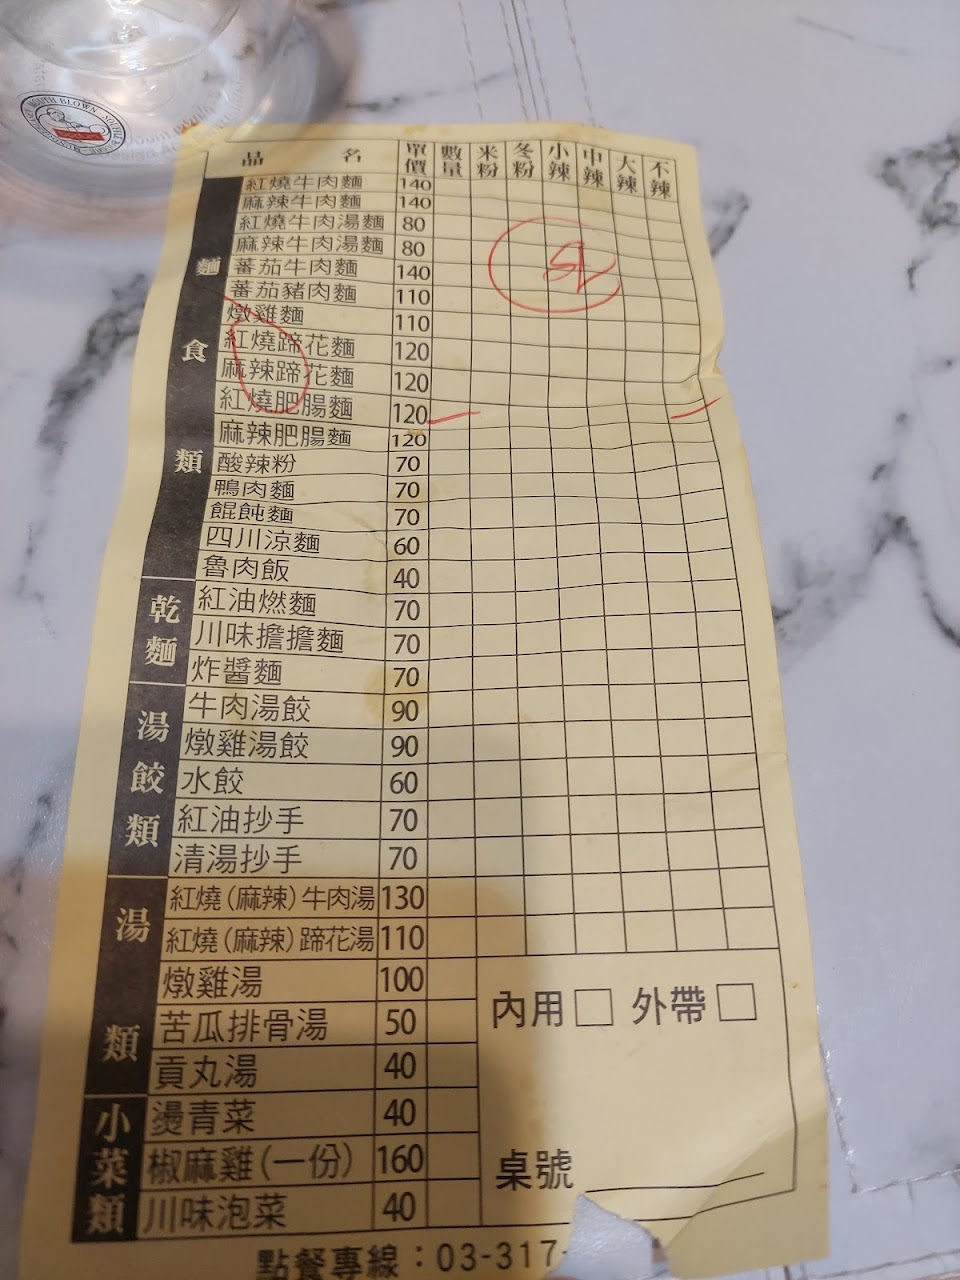 MOUTH BLOWN
品名 單價 數量 米粉 冬粉 小辣 中辣 大辣 不辣
麵食類
紅燒牛肉麵 140
麻辣牛肉麵 140
紅燒牛肉湯麵 80
麻辣牛肉湯麵 80
蕃茄牛肉麵 140
蕃茄豬肉麵 110
燉雞麵 110
紅燒蹄花麵 120
麻辣蹄花麵 120
紅燒肥腸麵 120
麻辣肥腸麵 120
酸辣粉 70
鴨肉麵 70
餛飩麵 70
四川涼麵 60
魯肉飯 40
乾麵
紅油燃麵 70
川味擔擔麵 70
炸醬麵 70
湯餃類
牛肉湯餃 90
燉雞湯餃 90
水餃 60
紅油抄手 70
清湯抄手 70
湯類
紅燒(麻辣)牛肉湯 130
紅燒(麻辣)蹄花湯 110
燉雞湯 100
苦瓜排骨湯 50
貢丸湯 40
小菜類
燙青菜 40
椒麻雞(一份) 160
川味泡菜 40
內用□ 外帶□
桌號
點餐專線：03-317-